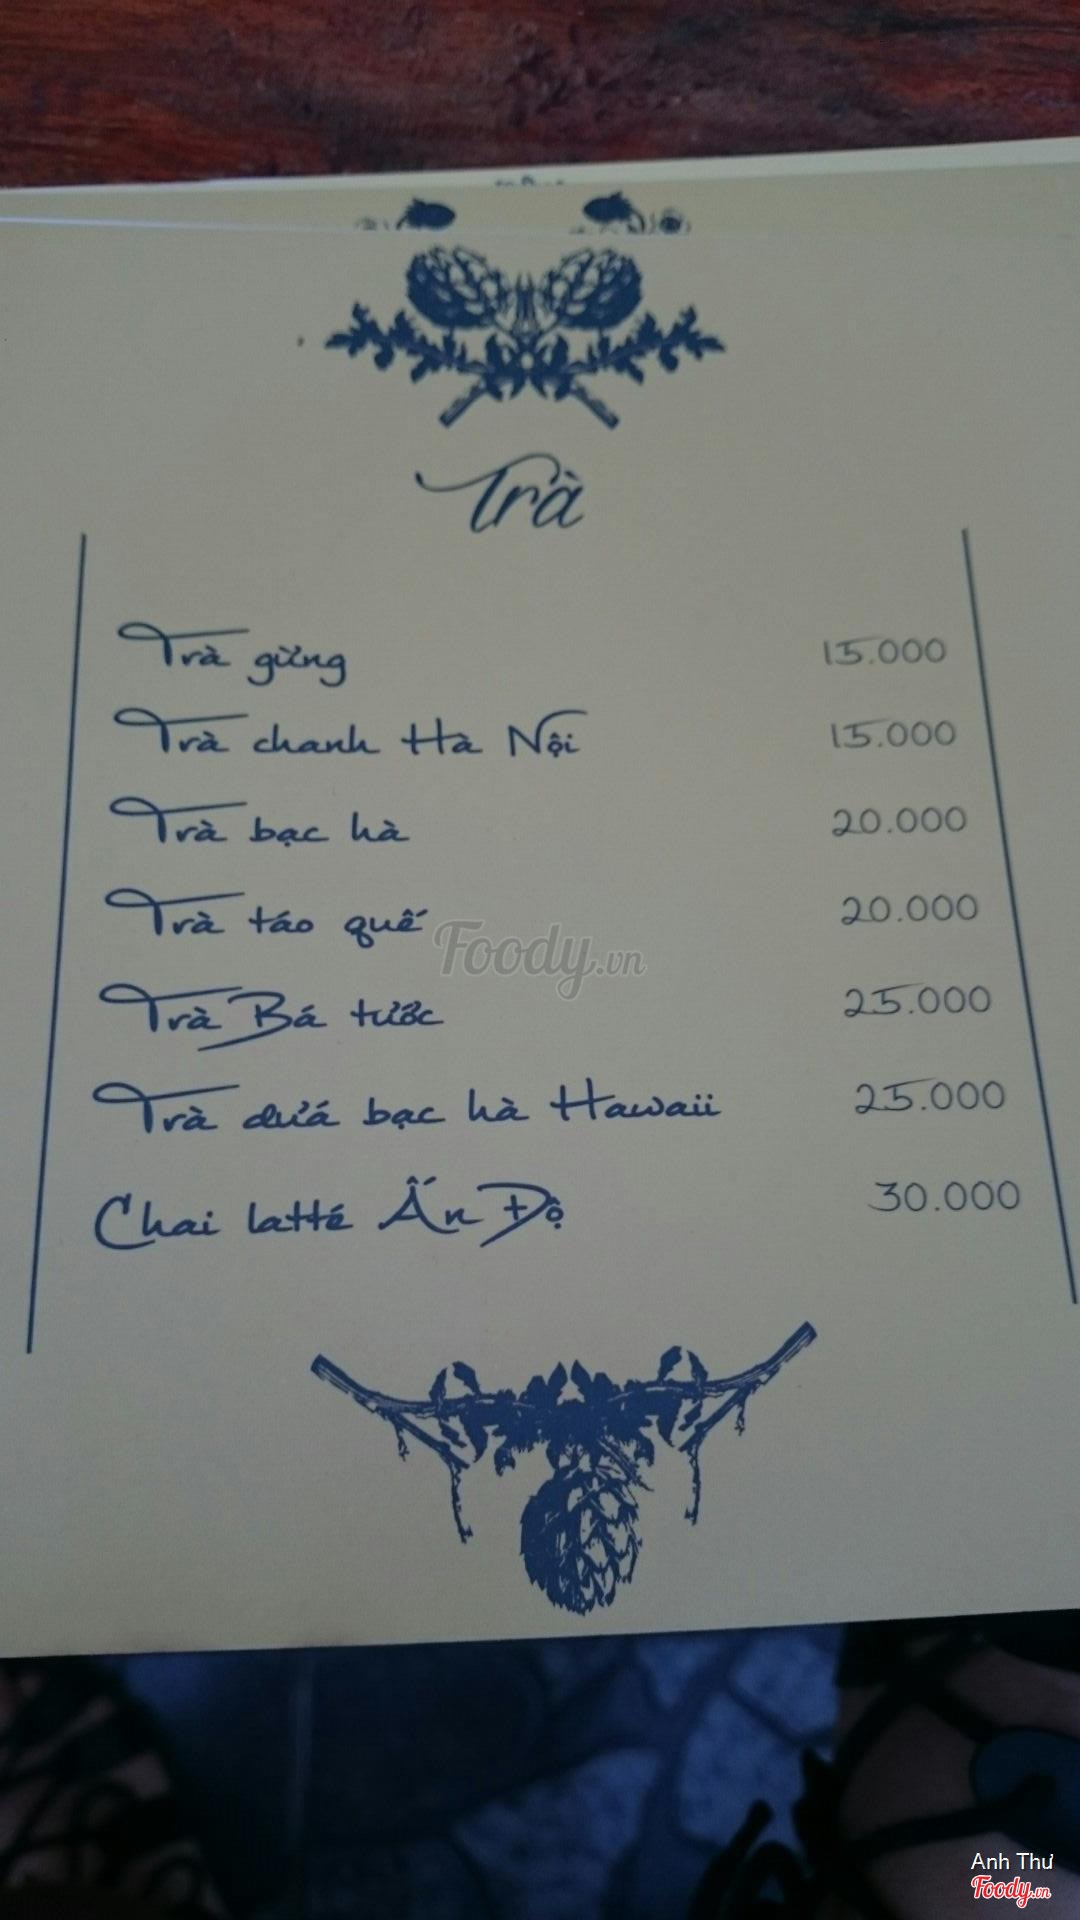 Trà
Trà gừng 15.000
Trà chanh Hà Nội 15.000
Trà bạc hà 20.000
Trà táo quế 20.000
Foody.vn
Trà Bá tước 25.000
Trà dứa bạc hà Hawaii 25.000
Chai latté Ấn Độ 30.000
Anh Thư
Foody.vn